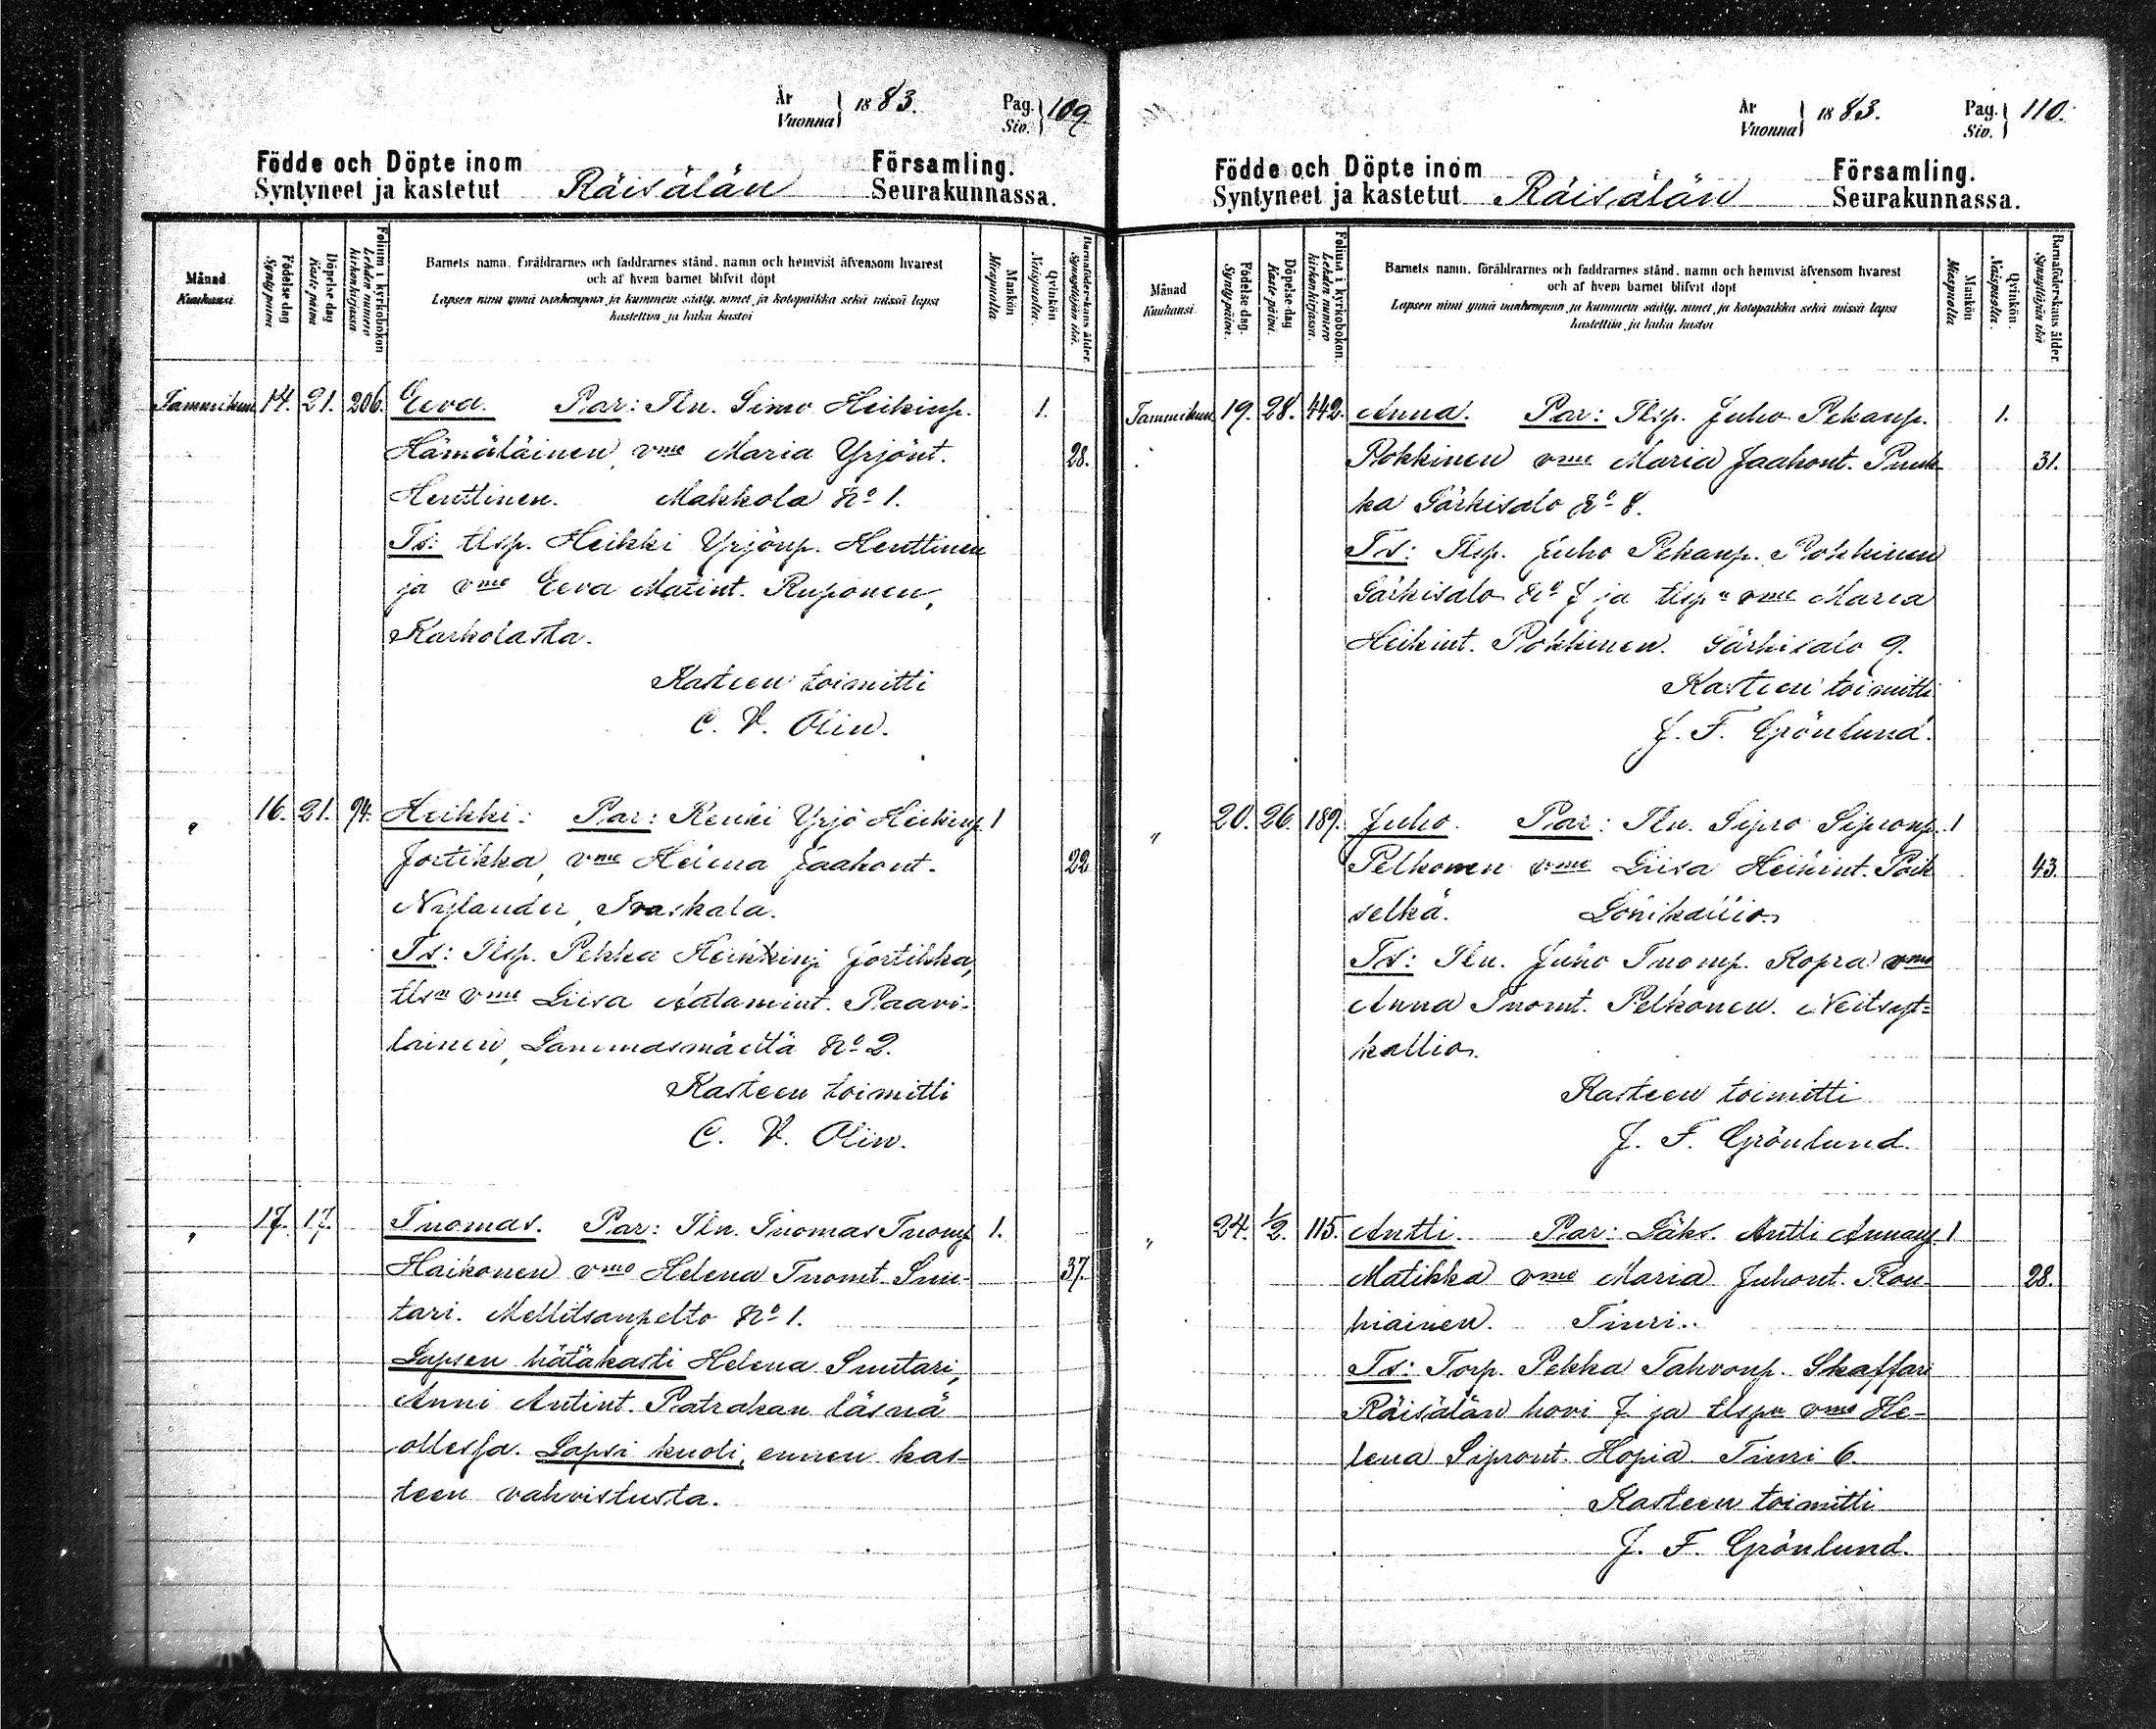 År
Vuonna } 1883.
Pag.
Siv. } 109
Födde och Döpte inom
Syntyneet ja kastetut Räisälän
Församling.
Seurakunnassa.
Månad
Kuukausi
Födelse dag
Synty päivä
Döpelse dag
Kaste päivä
Folium i kyrkoboken
Lehden numero
kirkonkirjassa
Barnets namn, föräldrarnes och faddrarnes stånd, namn och hemvist äfvensom hvarest
och af hvem barnet blifvit döpt
Lapsen nimi ynnä vanhempain ja kummein sääty, nimet ja kotopaikka sekä missä lapsi
kastettiin ja kuka kastoi
Mankön
Miespuolia
Qvinkön
Naispuolia
Barnaföderskans ålder.
Synnyttäjän ikä.
Tammikuu 14. 21. 206. Eeva. Par: Iln. Simo Heikinp. 1.
Hämäläinen, vmo Maria Yrjönt. 28.
Henttinen. Makkola No 1.
Ts: tlsp. Heikki Yrjönp. Henttinen
ja vmo Eeva Matint. Ruponen,
Karholasta.
Kasteen toimitti
C. V. Olin.
" 16. 21. 94. Heikki. Par: Renki Yrjö Heikinp. 1
Jortikka, vmo Helena Jaakont. 22
Nylander, Ivaskala.
Ts: Tlsp. Pekka Heikkinp Jortikka,
tlsn vmo Liisa Aatamint. Paavi-
lainen, Lammasmäeltä No 2.
Kasteen toimitti
C. V. Olin.
" 17. 17. Tuomas. Par: Iln. Tuomas Tuomp 1.
Haikonen vmo Helena Tuomt. Suu- 37.
tari. Mellitsanpelto No 1.
Lapsen hätäkasti Helena Suutari,
Anni Antint. Patrakan läsnä
ollessa. Lapsi kuoli, ennen kas-
teen vahvistusta.
År
Vuonna } 1883.
Pag.
Siv. } 110.
Födde och Döpte inom
Syntyneet ja kastetut Räisälän
Församling.
Seurakunnassa.
Månad
Kuukausi
Födelse dag.
Synty päivä.
Döpelse dag
Kaste päivä.
Folium i kyrkoboken.
Lehden numero
kirkonkirjassa.
Barnets namn, föräldrarnes och faddrarnes stånd, namn och hemvist äfvensom hvarest
och af hvem barnet blifvit döpt
Lapsen nimi ynnä vanhempain ja kummein sääty, nimet ja kotopaikka sekä missä lapsi
kastettiin ja kuka kastoi
Mankön
Miespuolia
Qvinkön.
Naispuolia.
Barnaföderskans ålder.
Synnyttäjän ikä
Tammikuu 19. 28. 442. Anna. Par: Tlsp. Juho Pekanp. 1.
Pokkinen vmo Maria Jaakont. Puuk- 31.
ka Särkisalo No 8.
Ts: Tlsp. Juho Pekanp. Pokkinen
Särkisalo No 7 ja tlspn vmo Maria
Heikint. Pokkinen. Särkisalo 9.
Kasteen toimitti
J. F. Grönlund.
" 20. 26. 189. Juho. Par: Iln. Sipro Sipronp. 1
Pelkonen vmo Liisa Heikint. Poik 43.
selkä. Sönikallio.
Ts: Iln. Juho Tuomp. Kopra vmo
Anna Tuomt. Pelkonen. Neitsyt=
kallio.
Kasteen toimitti
J. F. Grönlund.
" 24. 1/2. 115. Antti. Par: Läks. Antti Annanp. 1
Matikka vmo Maria Juhont. Rou 28.
hiainen. Tiuri.
Ts: Torp. Pekka Tahvonp. Skaffari
Räisälän hovi 7 ja tlspn vmo He-
lena Sipront. Hopia. Tiuri 6
Kasteen toimitti
J. F. Grönlund.